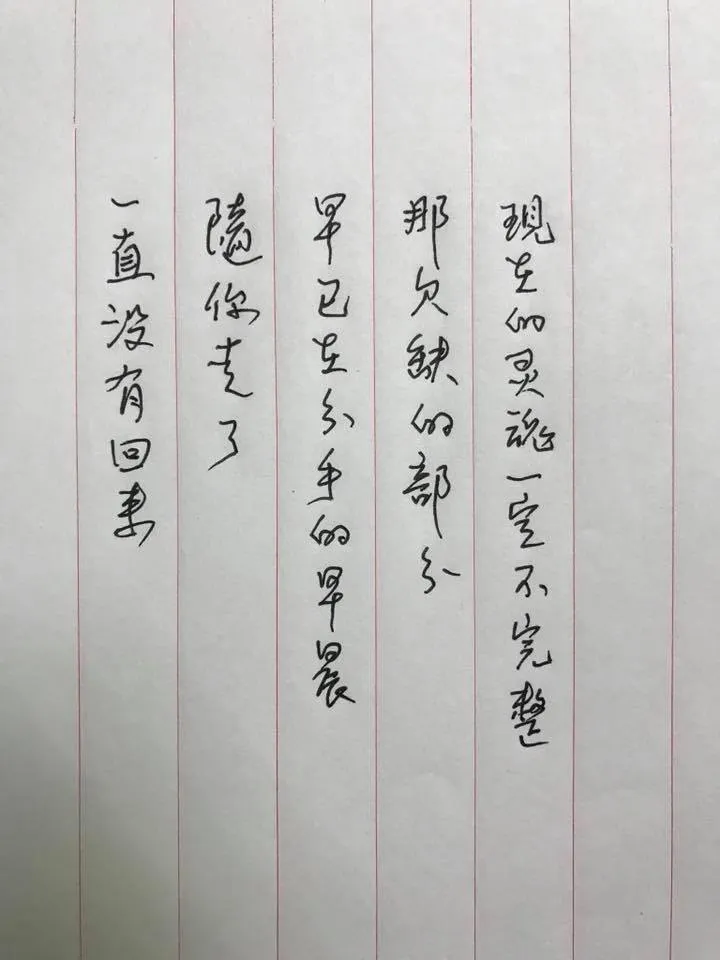 現在的灵魂一定不完整
那欠缺的部分
早已在分手的早晨
隨你走了
一直没有回来